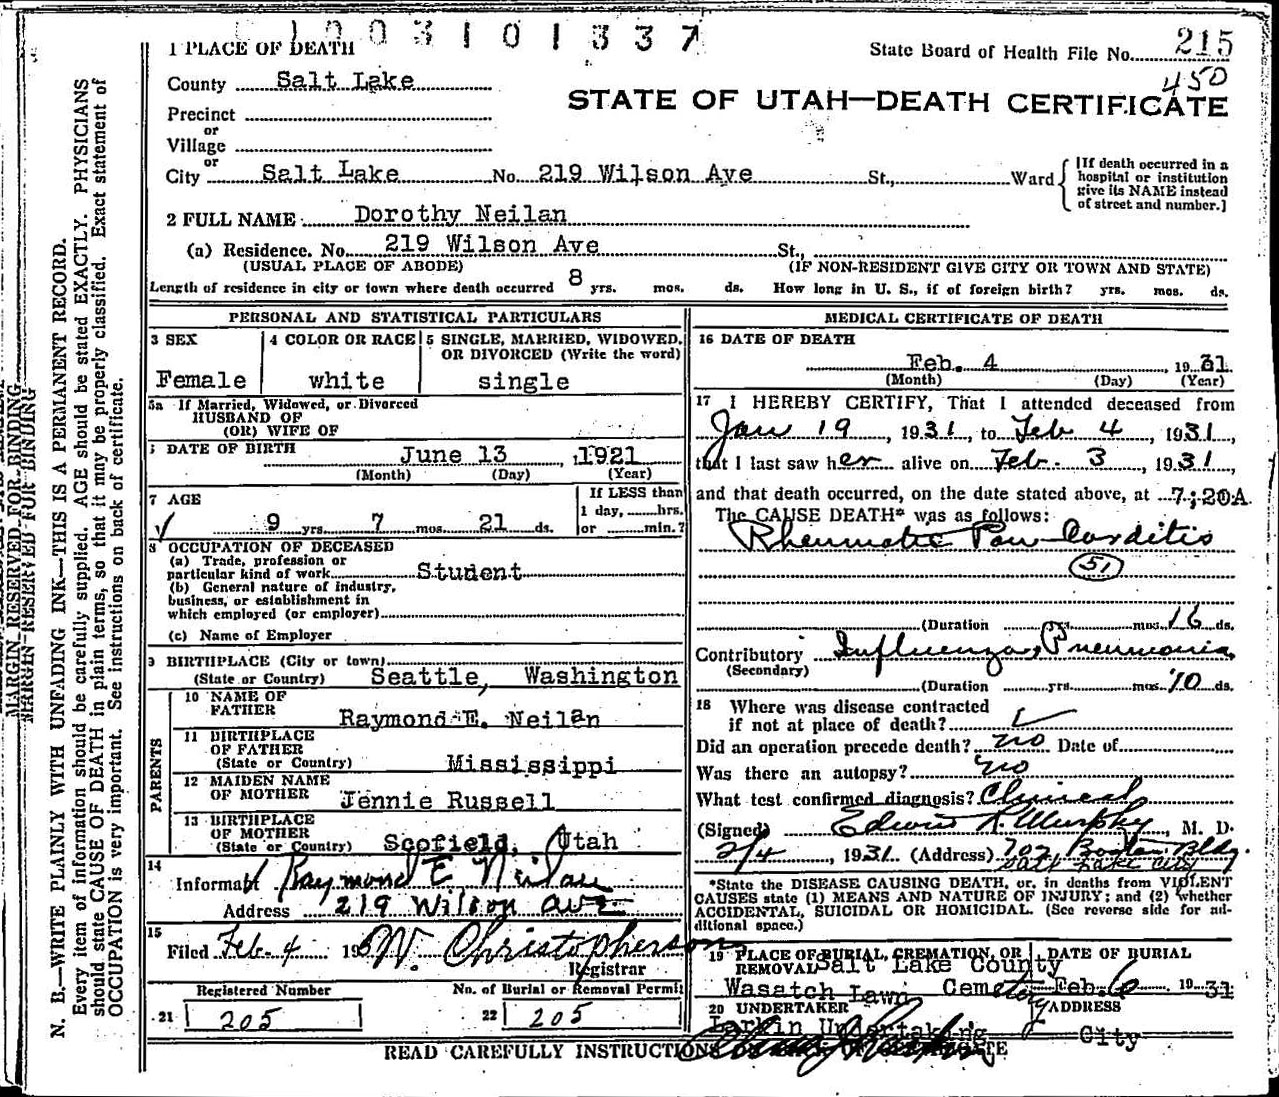 1003101337
1 PLACE OF DEATH
State Board of Health File No. 215
450
County Salt Lake
STATE OF UTAH—DEATH CERTIFICATE
Precinct
or
Village
or
City Salt Lake No. 219 Wilson Ave St., Ward
[If death occurred in a
hospital or institution
give its NAME instead
of street and number.]
2 FULL NAME Dorothy Neilan
(a) Residence. No. 219 Wilson Ave St.,
(USUAL PLACE OF ABODE) (IF NON-RESIDENT GIVE CITY OR TOWN AND STATE)
Length of residence in city or town where death occurred 8 yrs. mos. ds. How long in U. S., if of foreign birth? yrs. mos. ds.
PERSONAL AND STATISTICAL PARTICULARS
3 SEX
Female
4 COLOR OR RACE
white
5 SINGLE, MARRIED, WIDOWED,
OR DIVORCED (Write the word)
single
5a If Married, Widowed, or Divorced
HUSBAND OF
(OR) WIFE OF
DATE OF BIRTH
June 13, 1921
(Month) (Day) (Year)
7 AGE
9 yrs. 7 mos. 21 ds.
If LESS than
1 day, hrs.
or min.?
8 OCCUPATION OF DECEASED
(a) Trade, profession or
particular kind of work Student
(b) General nature of industry,
business, or establishment in
which employed (or employer)
(c) Name of Employer
9 BIRTHPLACE (City or town)
(State or Country) Seattle, Washington
PARENTS
10 NAME OF
FATHER Raymond E. Neilan
11 BIRTHPLACE
OF FATHER
(State or Country) Mississippi
12 MAIDEN NAME
OF MOTHER Jennie Russell
13 BIRTHPLACE
OF MOTHER
(State or Country) Scofield, Utah
14
Informant Raymond E Neilan
Address 219 Wilson Ave
15
Filed Feb. 4 193 W. Christopherson
Registrar
Registered Number No. of Burial or Removal Permit
21 205 22 205
MEDICAL CERTIFICATE OF DEATH
16 DATE OF DEATH
Feb. 4, 1931
(Month) (Day) (Year)
17 I HEREBY CERTIFY, That I attended deceased from
Jan 19, 1931, to Feb 4, 1931,
that I last saw her alive on Feb. 3, 1931,
and that death occurred, on the date stated above, at 7;20A.
The CAUSE DEATH* was as follows:
Rheumatic Pan Carditis
51
(Duration yrs. mos. 16 ds.
Contributory Influenza, Pneumonia
(Secondary)
(Duration yrs. mos. 10 ds.
18 Where was disease contracted
if not at place of death?
Did an operation precede death? no Date of
Was there an autopsy? no
What test confirmed diagnosis? Clinical
(Signed) Edwin R. Murphy, M. D.
2/4, 1931. (Address) 702 Boston Bldg.
Salt Lake City
*State the DISEASE CAUSING DEATH, or, in deaths from VIOLENT
CAUSES state (1) MEANS AND NATURE OF INJURY; and (2) whether
ACCIDENTAL, SUICIDAL OR HOMICIDAL. (See reverse side for ad-
ditional space.)
19 PLACE OF BURIAL, CREMATION, OR
REMOVAL Salt Lake County
Wasatch Lawn Cemetery
DATE OF BURIAL
Feb. 6 1931
20 UNDERTAKER
Larkin Undertaking
ADDRESS
City
READ CAREFULLY INSTRUCTIONS
MARGIN RESERVED FOR BINDING
MARGIN RESERVED FOR BINDING
N. B.—WRITE PLAINLY WITH UNFADING INK—THIS IS A PERMANENT RECORD.
Every item of information should be carefully supplied. AGE should be stated EXACTLY. PHYSICIANS
should state CAUSE OF DEATH in plain terms, so that it may be properly classified. Exact statement of
OCCUPATION is very important. See instructions on back of certificate.